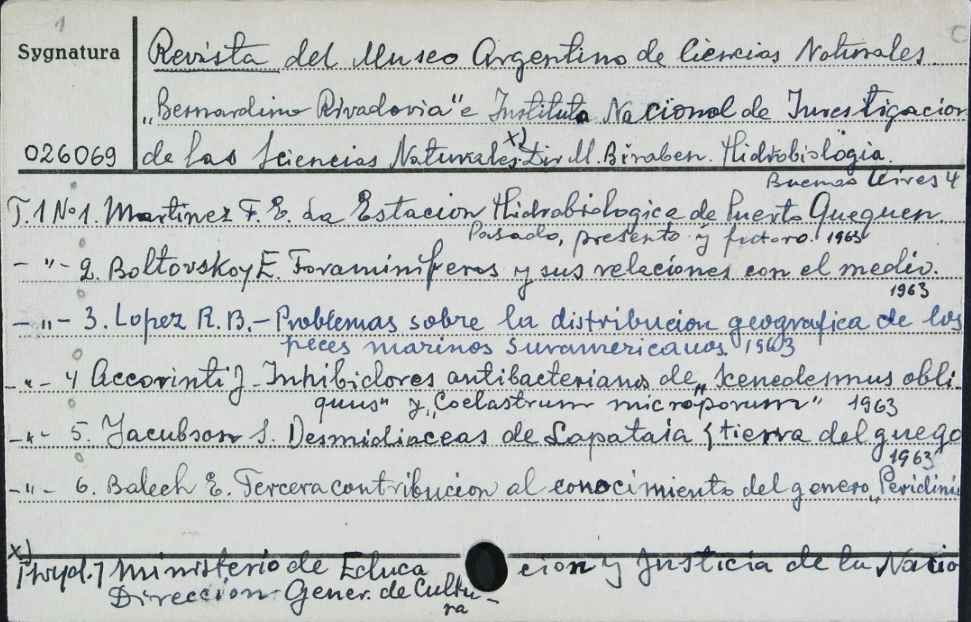 1
Sygnatura
026069
Revista del Museo Argentino de Ciencias Naturales
„Bernardino Rivadavia" e Instituto Nacional de Investigacion
de las Sciencias Naturales x) Dir M. Biraben. Hidrobiologia.
Buenos Aires 4
T. 1 No 1. Martinez F. E. La Estacion Hidrobiologica de Puerto Quequen
Pasado, presento y futoro. 1963
- " - 2. Boltovskoy E. Foraminiferos y sus relaciones con el medio.
1963
- " - 3. Lopez R. B. - Problemas sobre la distribucion geografica de los
peces marinos suramericanos. 1963
- " - 4 Accorinti J - Inhibidores antibacterianos de „Scenedesmus obli-
quus" y „Coelastrum microporum" 1963
- " - 5. Jacubson S. Desmidiaceas de Lapataia { tierra del guego
1963
- " - 6. Balech E. Tercera contribucion al conocimiento del genero „Peridiniu
x)
[wyd.] Ministerio de Educacion y Justicia de la Nacio
Direccion Gener. de Cultu-
ra